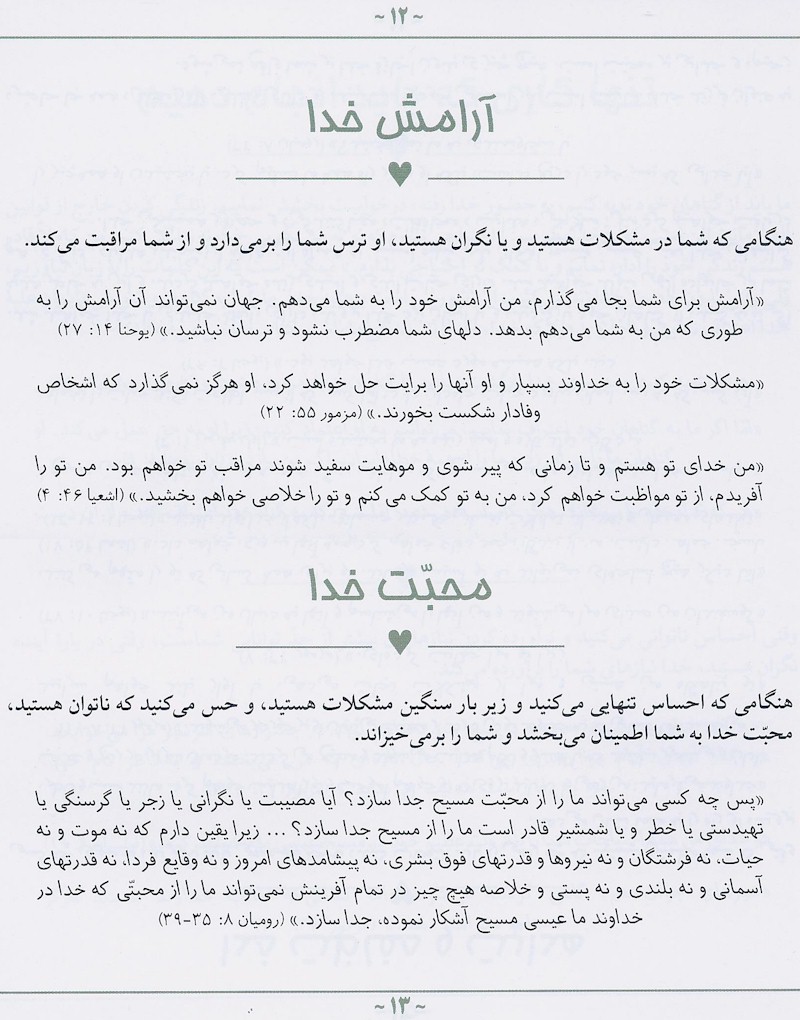 ~ ۱۲ ~
آرامش خدا
هنگامی که شما در مشکلات هستید و یا نگران هستید، او ترس شما را برمی‌دارد و از شما مراقبت می‌کند.
«آرامش برای شما بجا می‌گذارم، من آرامش خود را به شما می‌دهم. جهان نمی‌تواند آن آرامش را به
طوری که من به شما می‌دهم بدهد. دلهای شما مضطرب نشود و ترسان نباشید.» (یوحنا ۱۴: ۲۷)
«مشکلات خود را به خداوند بسپار و او آنها را برایت حل خواهد کرد، او هرگز نمی‌گذارد که اشخاص
وفادار شکست بخورند.» (مزمور ۵۵: ۲۲)
«من خدای تو هستم و تا زمانی که پیر شوی و موهایت سفید شوند مراقب تو خواهم بود. من تو را
آفریدم، از تو مواظبت خواهم کرد، من به تو کمک می‌کنم و تو را خلاصی خواهم بخشید.» (اشعیا ۴۶: ۴)
محبّت خدا
هنگامی که احساس تنهایی می‌کنید و زیر بار سنگین مشکلات هستید، و حس می‌کنید که ناتوان هستید،
محبّت خدا به شما اطمینان می‌بخشد و شما را برمی‌خیزاند.
«پس چه کسی می‌تواند ما را از محبّت مسیح جدا سازد؟ آیا مصیبت یا نگرانی یا زجر یا گرسنگی یا
تهیدستی یا خطر و یا شمشیر قادر است ما را از مسیح جدا سازد؟ ... زیرا یقین دارم که نه موت و نه
حیات، نه فرشتگان و نه نیروها و قدرتهای فوق بشری، نه پیشامدهای امروز و نه وقایع فردا، نه قدرتهای
آسمانی و نه بلندی و نه پستی و خلاصه هیچ چیز در تمام آفرینش نمی‌تواند ما را از محبتّی که خدا در
خداوند ما عیسی مسیح آشکار نموده، جدا سازد.» (رومیان ۸: ۳۵-۳۹)
~ ۱۳ ~